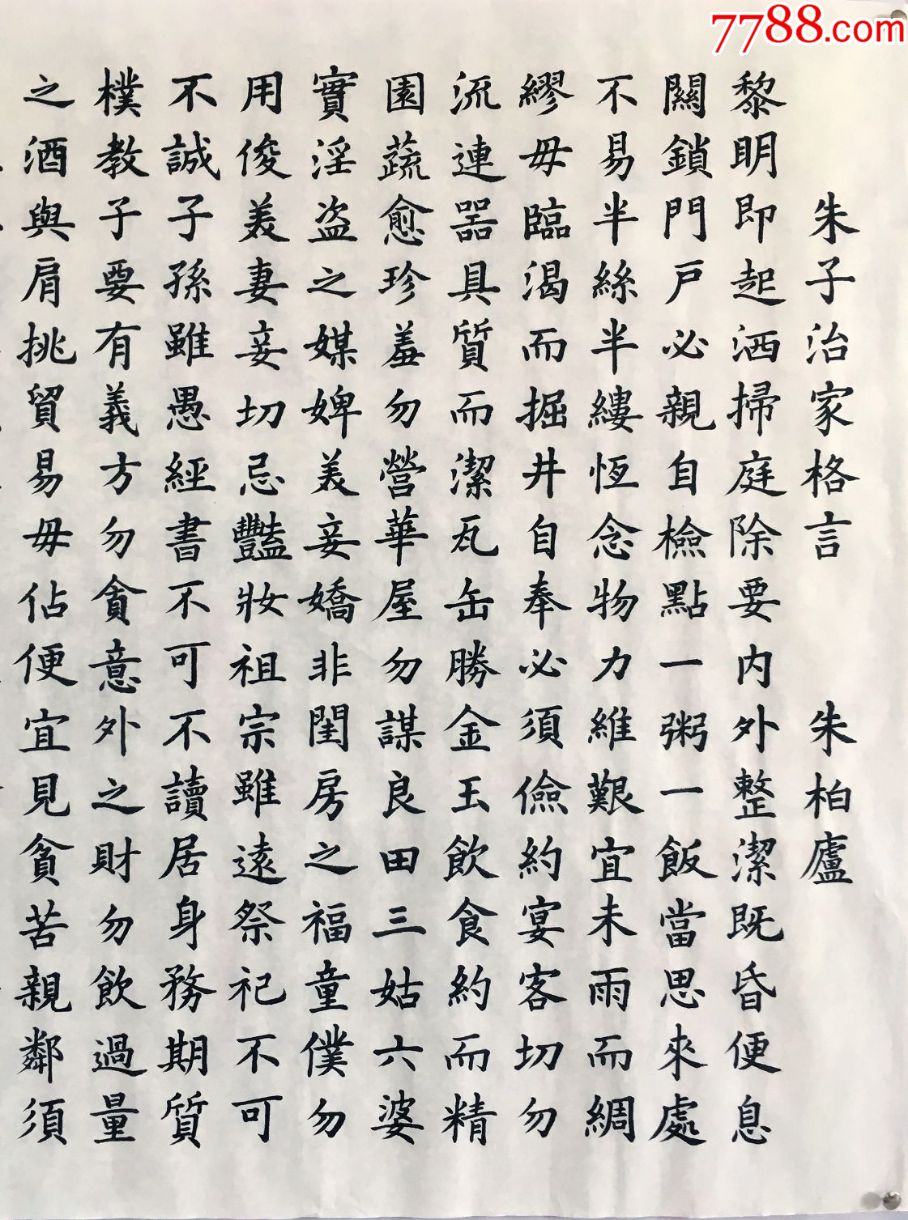 7788.com
朱子治家格言 朱柏廬
黎明即起洒掃庭除要内外整潔既昏便息
關鎖門戶必親自檢點一粥一飯當思來處
不易半絲半縷恆念物力維艱宜未雨而綢
繆毋臨渴而掘井自奉必須儉約宴客切勿
流連器具質而潔瓦缶勝金玉飲食約而精
園蔬愈珍羞勿營華屋勿謀良田三姑六婆
實淫盗之媒婢美妾嬌非閨房之福童僕勿
用俊美妻妾切忌豔妝祖宗雖遠祭祀不可
不誠子孫雖愚經書不可不讀居身務期質
樸教子要有義方勿貪意外之財勿飲過量
之酒與肩挑貿易毋佔便宜見貧苦親鄰須